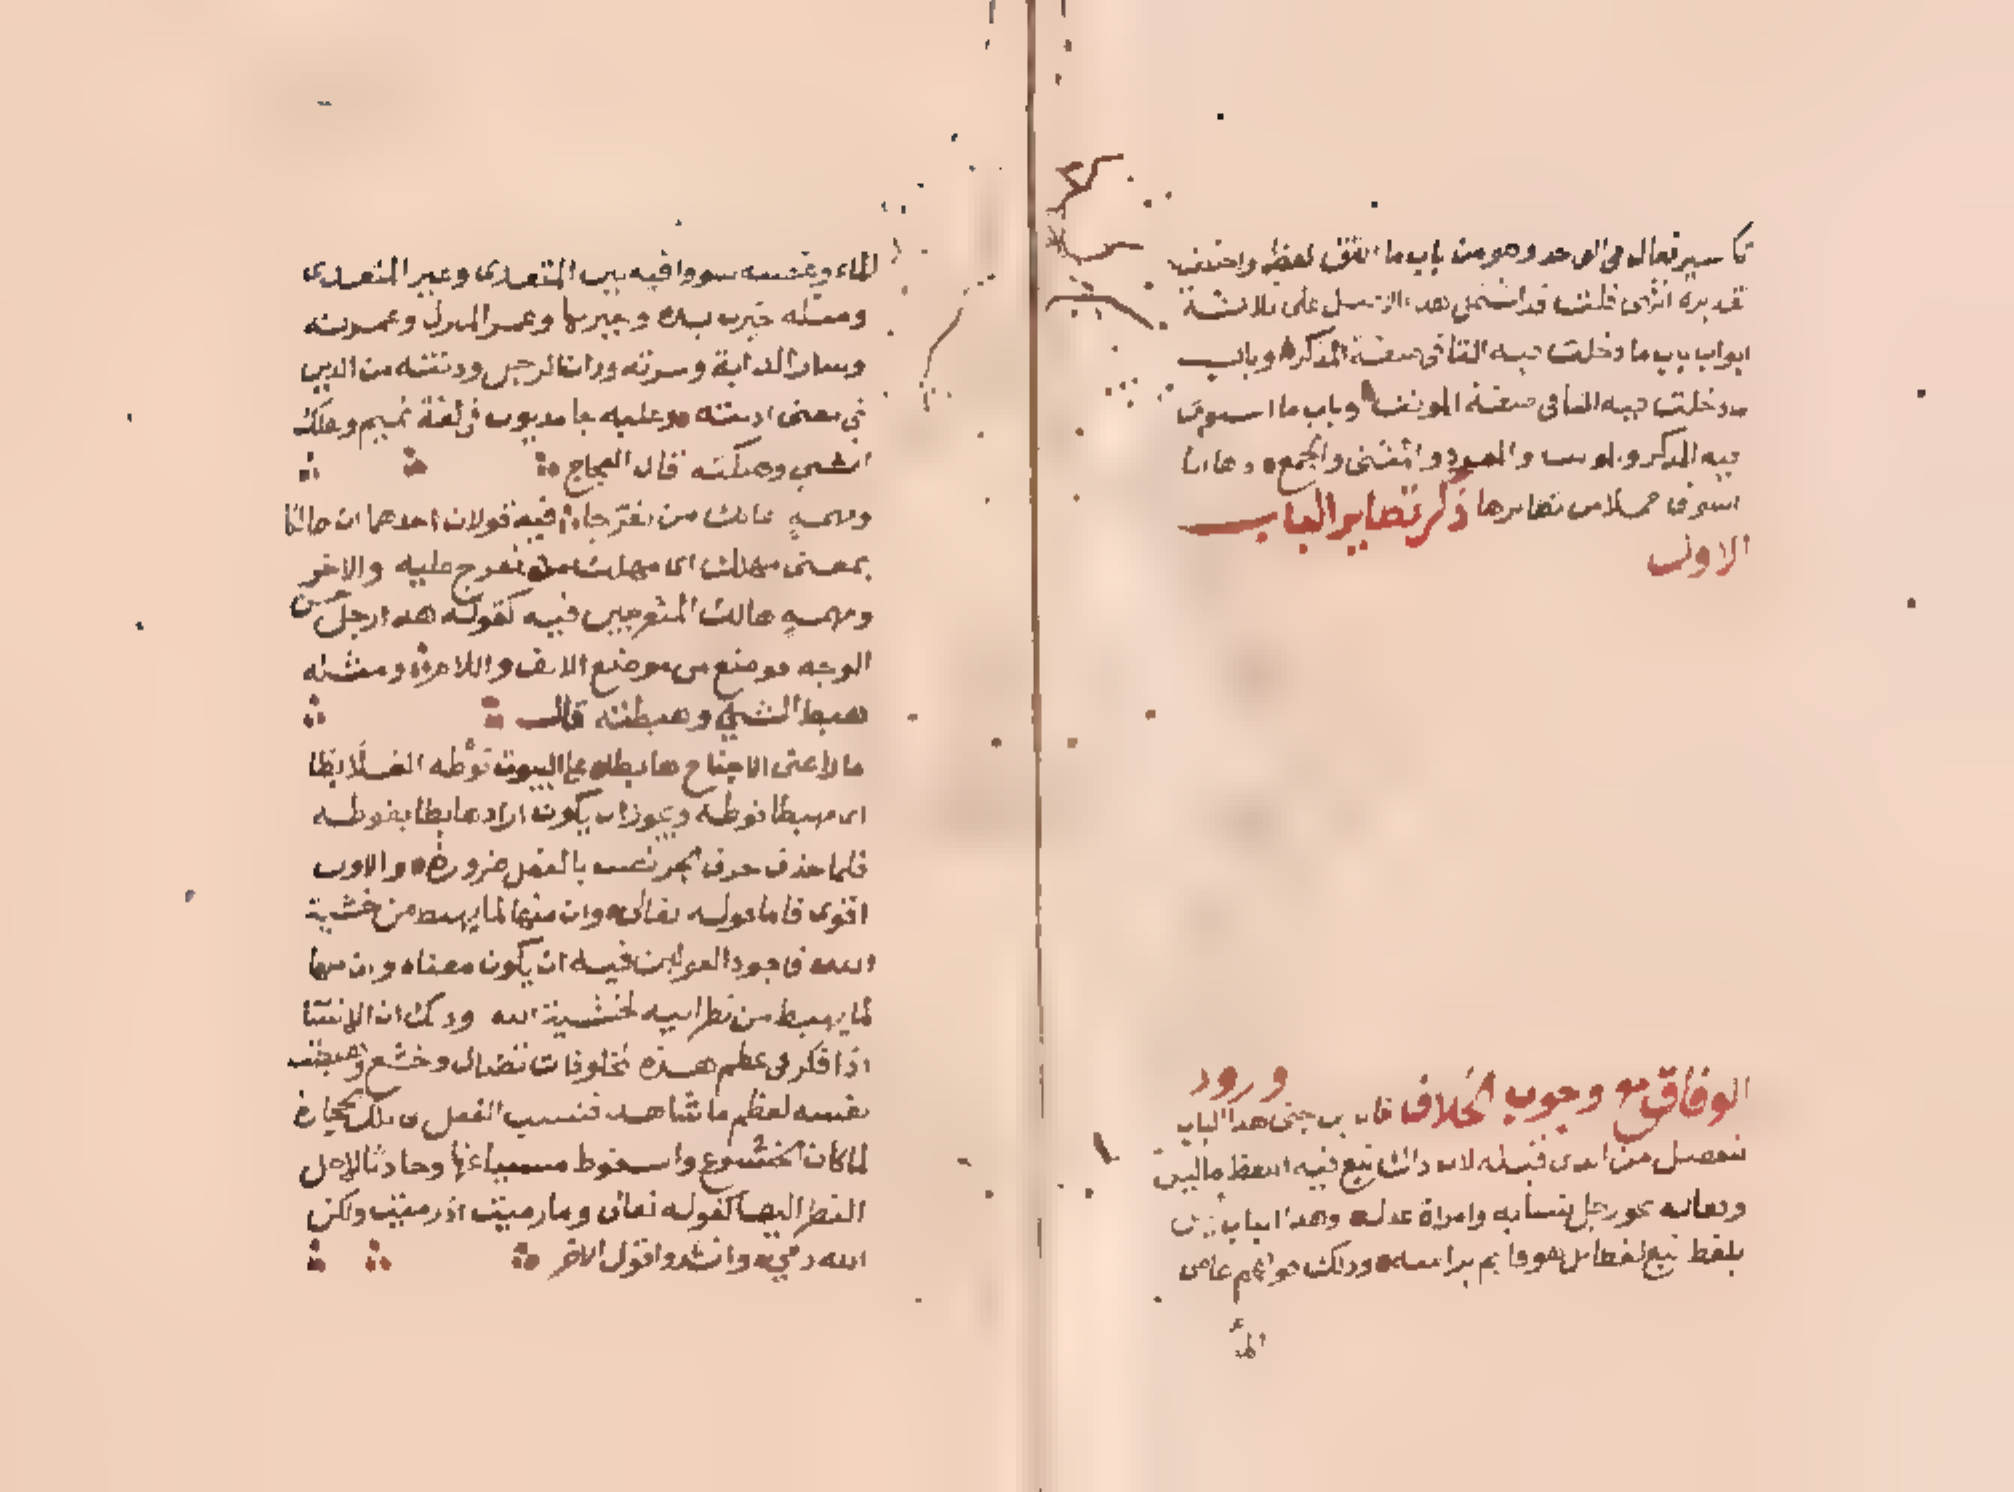 تكاسير فعال في الواحد وهو من باب ما اتفق لفظه واختلف
تقديره انتهى قلت قد اشتمل هذا الفصل على ثلاثة
ابواب باب ما دخلت فيه التا في صفة المذكر وباب
ما دخلت فيه التا في صفة المونث وباب ما استوى
فيه المذكر والمونث والمفرد والمثنى والجمع وها انا
اسرد جملا من نظايرها ذكر نظاير الباب
الاول
ورود
الوفاق مع وجوب الخلاف قال بن جني هذا الباب
ينفصل من الذي قبله لان ذاك تبع فيه اللفظ ما ليس
وفعاله نحو رجل نسابه وامراة عدل وهذا الباب
بلفظ تبع لفظا بل هو قايم براسه وذلك قولهم غاض
الما
الماء وغضته سووا فيه بين المتعدي وغير المتعدي
ومثله جبرت يده وجبرتها وعمر المنزل وعمرته
وسار الدابة وسرته ودان الرجل ودنته من الدين
في معنى ادنته وعليه جا مديون في لغة تميم وهلك
الشي وهلكته قال العجاج
ومهمه هالك من تعرجا فيه قولان احدهما ان هالكا
بمعنى مهلك اي مهلك من تعرج عليه والاخر
ومهمه هالك المتعرجين فيه كقوله هذا رجل حسن
الوجه فوضع من موضع الالف واللام ومثله
هبط الشي وهبطته قال
ما راعني الا جناح هابطا على البيوت قوطه العلابطا
اي مهبطا قوطه ويجوز ان يكون اراد هابطا بقوطه
فلما حذف حرف الجر نصب بالفعل ضرورة والاول
اقوى فاما قوله تعالى وان منها لما يهبط من خشية
الله فاجود القولين فيه ان يكون معناه وان منها
لما يهبط من نظر اليه لخشية الله وذلك ان الانسان
اذا فكر في عظم هذه المخلوقات تضال وخشع وهبطت
نفسه لعظم ما شاهد فنسب الفعل الى تلك الحجارة
لما كان الخشوع والسقوط مسببا عنها وحادثا لاجل
النظر اليها كقوله تعالى وما رميت اذ رميت ولكن
الله رمى وانشدوا قول الاخر